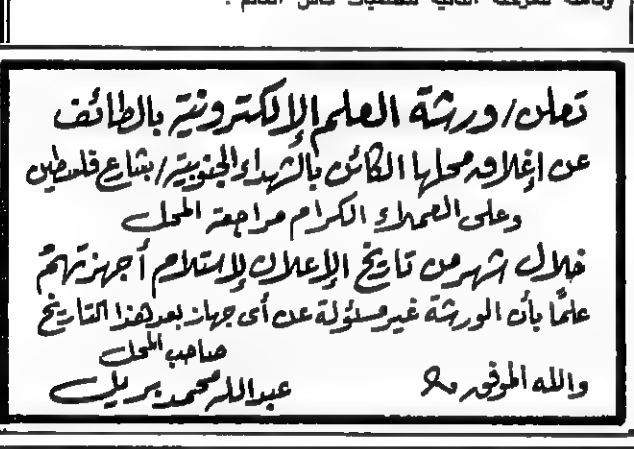 تعلن / ورشة العلم الإلكترونية بالطائف
عن إغلاق محلها الكائن بالشهداء الجنوبية / بشارع فلسطين
وعلى العملاء الكرام مراجعة المحل
خلال شهر من تاريخ الإعلان لإستلام أجهزتهم
علمًا بأن الورشة غير مسئولة عن أى جهاز بعد هذا التاريخ
صاحب المحل
والله الموفق عبدالله محمد